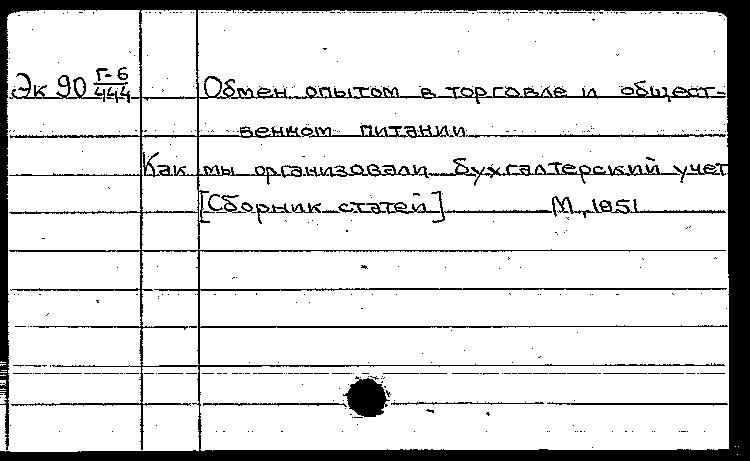 Эк 90 Г-6/444 Обмен опытом в торговле и общест-
венном питании
Как мы организовали бухгалтерский учет
[Сборник статей] М., 1951